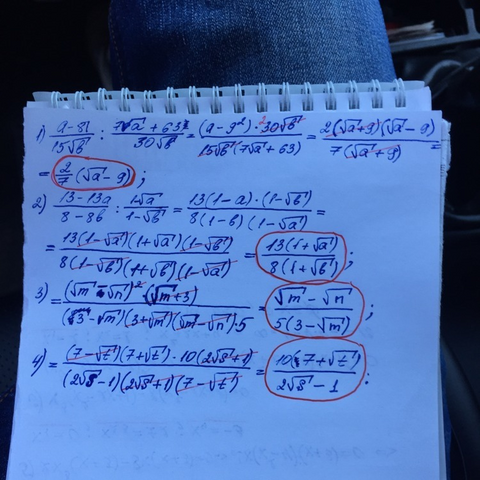 1) (a-81)/(15√b) : (7√a+63)/(30√b) = ((a-9²)·30√b)/(15√b(7√a+63)) = (2(√a+9)(√a-9))/(7(√a+9)) =
= 2/7(√a-9);
2) (13-13a)/(8-8b) : (1-√a)/(1-√b) = (13(1-a)·(1-√b))/(8(1-b)(1-√a)) =
= (13(1-√a)(1+√a)(1-√b))/(8(1-√b)(1+√b)(1-√a)) = (13(1+√a))/(8(1+√b));
3) = ((√m-√n)²(√m+3))/((3-√m)(3+√m)(√m-√n)·5) = (√m-√n)/(5(3-√m));
4) = ((7-√t)(7+√t)·10(2√s+1))/((2√s-1)(2√s+1)(7-√t)) = (10(7+√t))/(2√s-1);